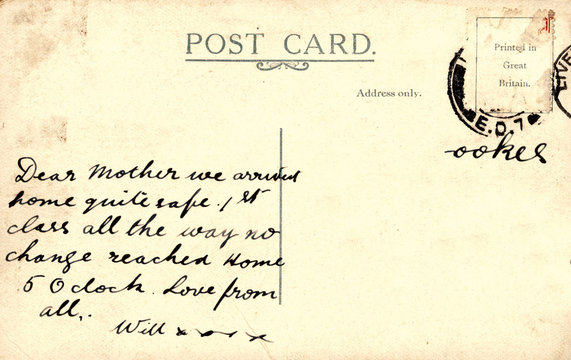 POST CARD.
Printed in
Great
Britain.
Address only.
LIVE
E.D.7
ookes
Dear Mother we arrived
home quite safe. 1st
class all the way no
change reached Home
5 O clock. Love from
all,.
Will x x x x